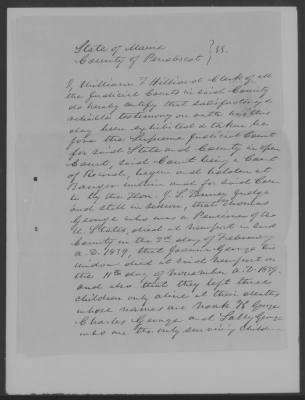 State of Maine
County of Penobscot } SS.
I William T Hilliard Clerk of all
the Judicial Courts in said County
do hereby certify that satisfactory
testimony on oath has this
day been exhibited & taken be
fore the Supreme Judicial Court
for said State and County in open
Court, said Court being a Court
of Record, begun and holden at
Bangor within and for said Coun
ty by the Hon. Judge
and still in session, that Thomas
George who was a Pensioner of the
U. States, died at Newport in said
County on the 3rd day of February
A.D. 1839, that George his
widow died at said Newport on
the 11th day of November A.D. 1839.
and also that they left three
children only alive at their deaths
whose names are Noah K George
Charles George and Sally George
who are the only surviving children